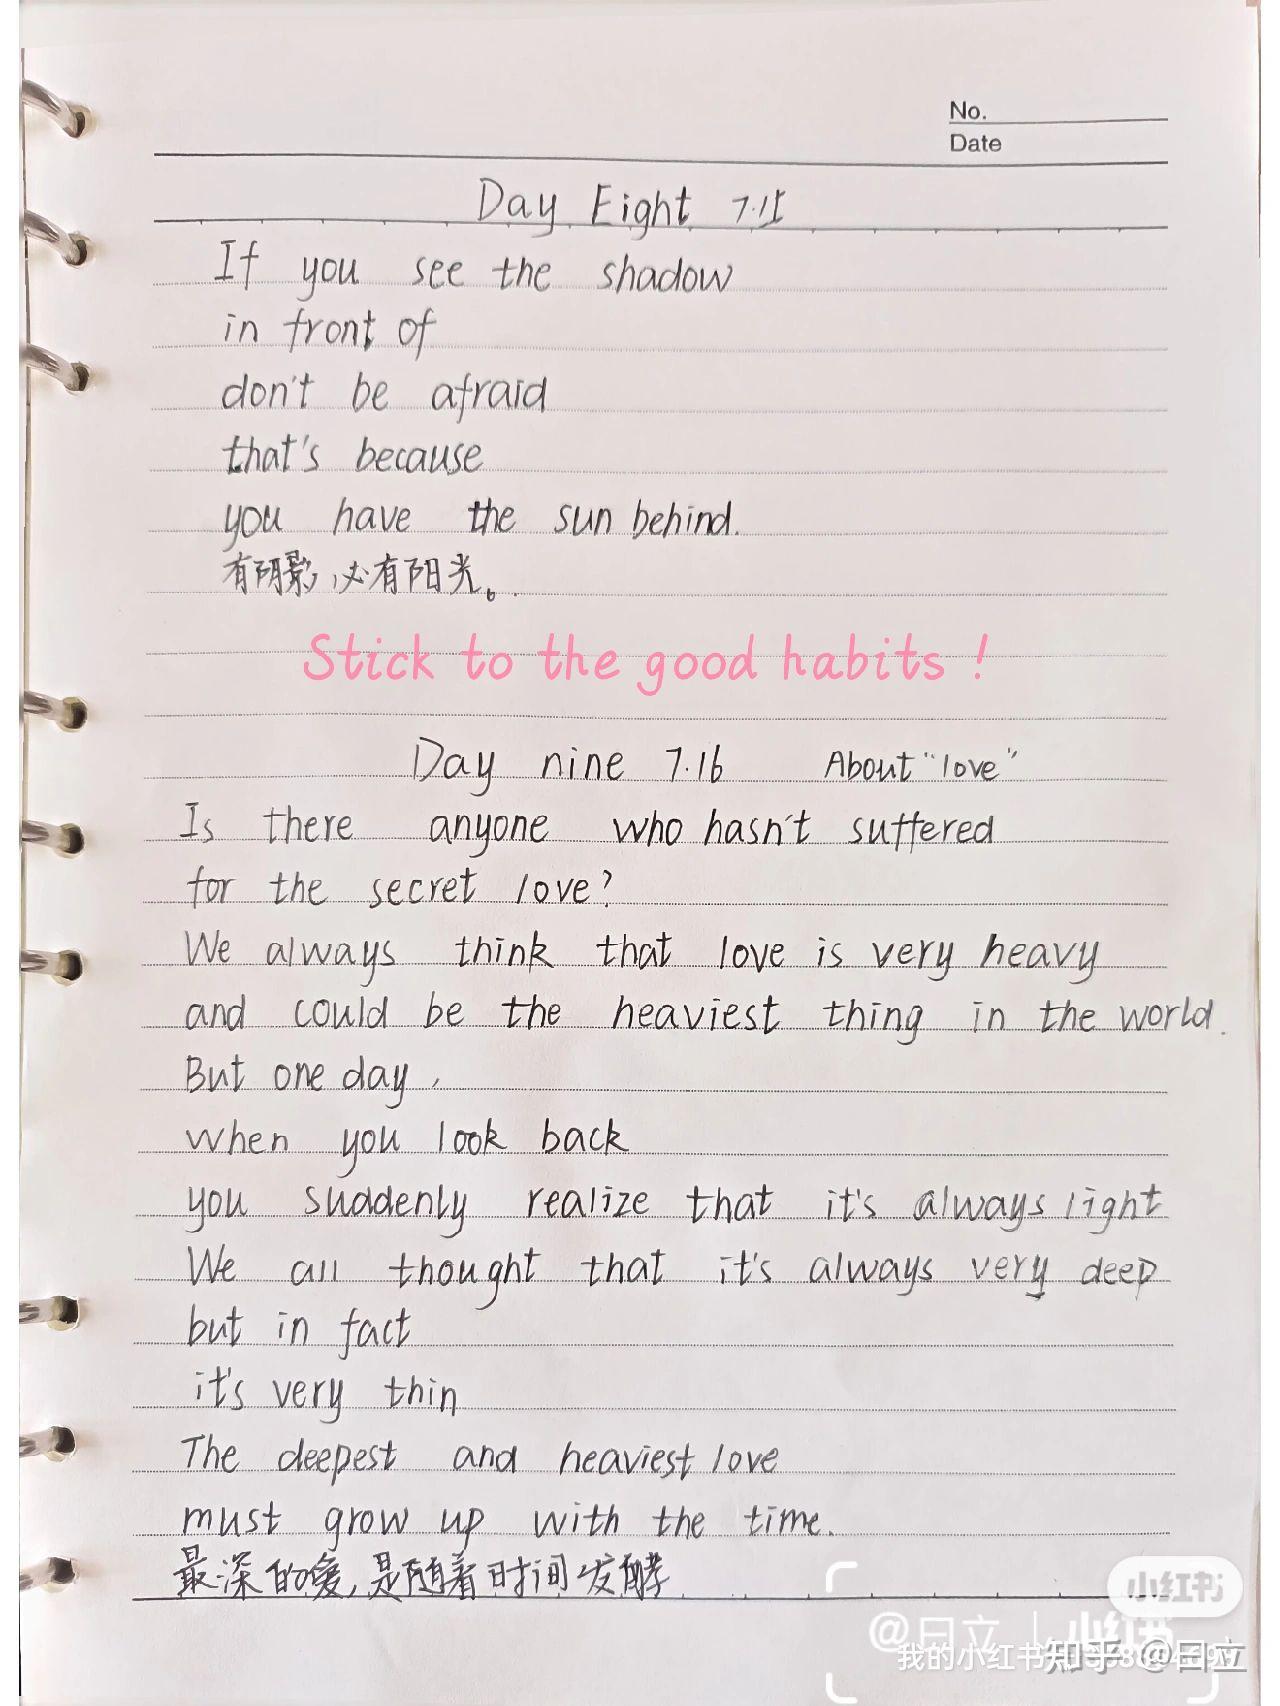 No.
Date
Day Eight 7.15
If you see the shadow
in front of
don't be afraid
that's because
you have the sun behind.
有阴影,必有阳光。
Stick to the good habits !
Day nine 7.16 About "love"
Is there anyone who hasn't suffered
for the secret love?
We always think that love is very heavy
and could be the heaviest thing in the world.
But one day,
when you look back
you suddenly realize that it's always light
We all thought that it's always very deep
but in fact
it's very thin
The deepest and heaviest love
must grow up with the time.
最深的爱,是随着时间发酵
小红书
@日立 | 小红书
我的小红书
知乎 @日立